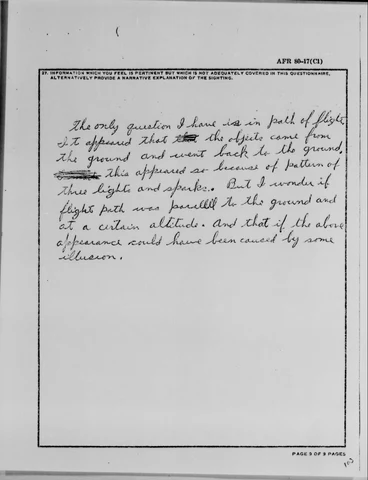 AFR 80-17(C1)
27. INFORMATION WHICH YOU FEEL IS PERTINENT BUT WHICH IS NOT ADEQUATELY COVERED IN THIS QUESTIONNAIRE,
ALTERNATIVELY PROVIDE A NARRATIVE EXPLANATION OF THE SIGHTING.
The only question I have is in path of flight
it appeared that the objects came from
the ground and went back to the ground,
this appeared so because of pattern of
three lights and sparks. But I wonder if
flight path was parellell to the ground and
at a certain altitude. And that if the above
appearance could have been caused by some
illusion.
PAGE 5 OF 5 PAGES